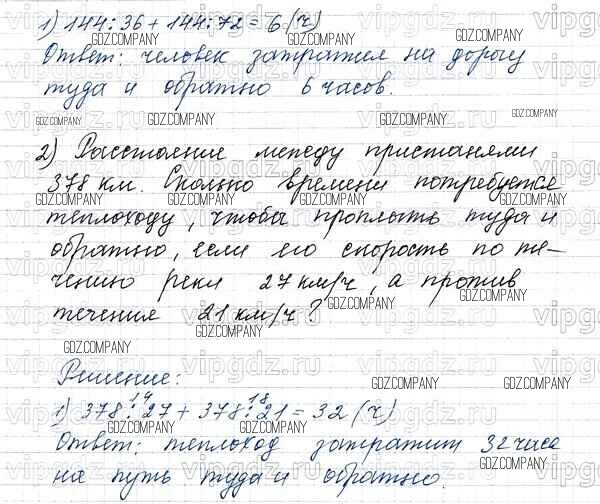 1) 144:36 + 144:72 = 6 (ч)
Ответ: человек затратил на дорогу
туда и обратно 6 часов.
2) Расстояние между пристанями
378 км. Сколько времени потребуется
теплоходу, чтобы проплыть туда и
обратно, если его скорость по те-
чению реки 27 км/ч, а против
течения 21 км/ч?
Решение:
14 18
1) 378:27 + 378:21 = 32 (ч)
Ответ: теплоход затратит 32 часа
на путь туда и обратно.